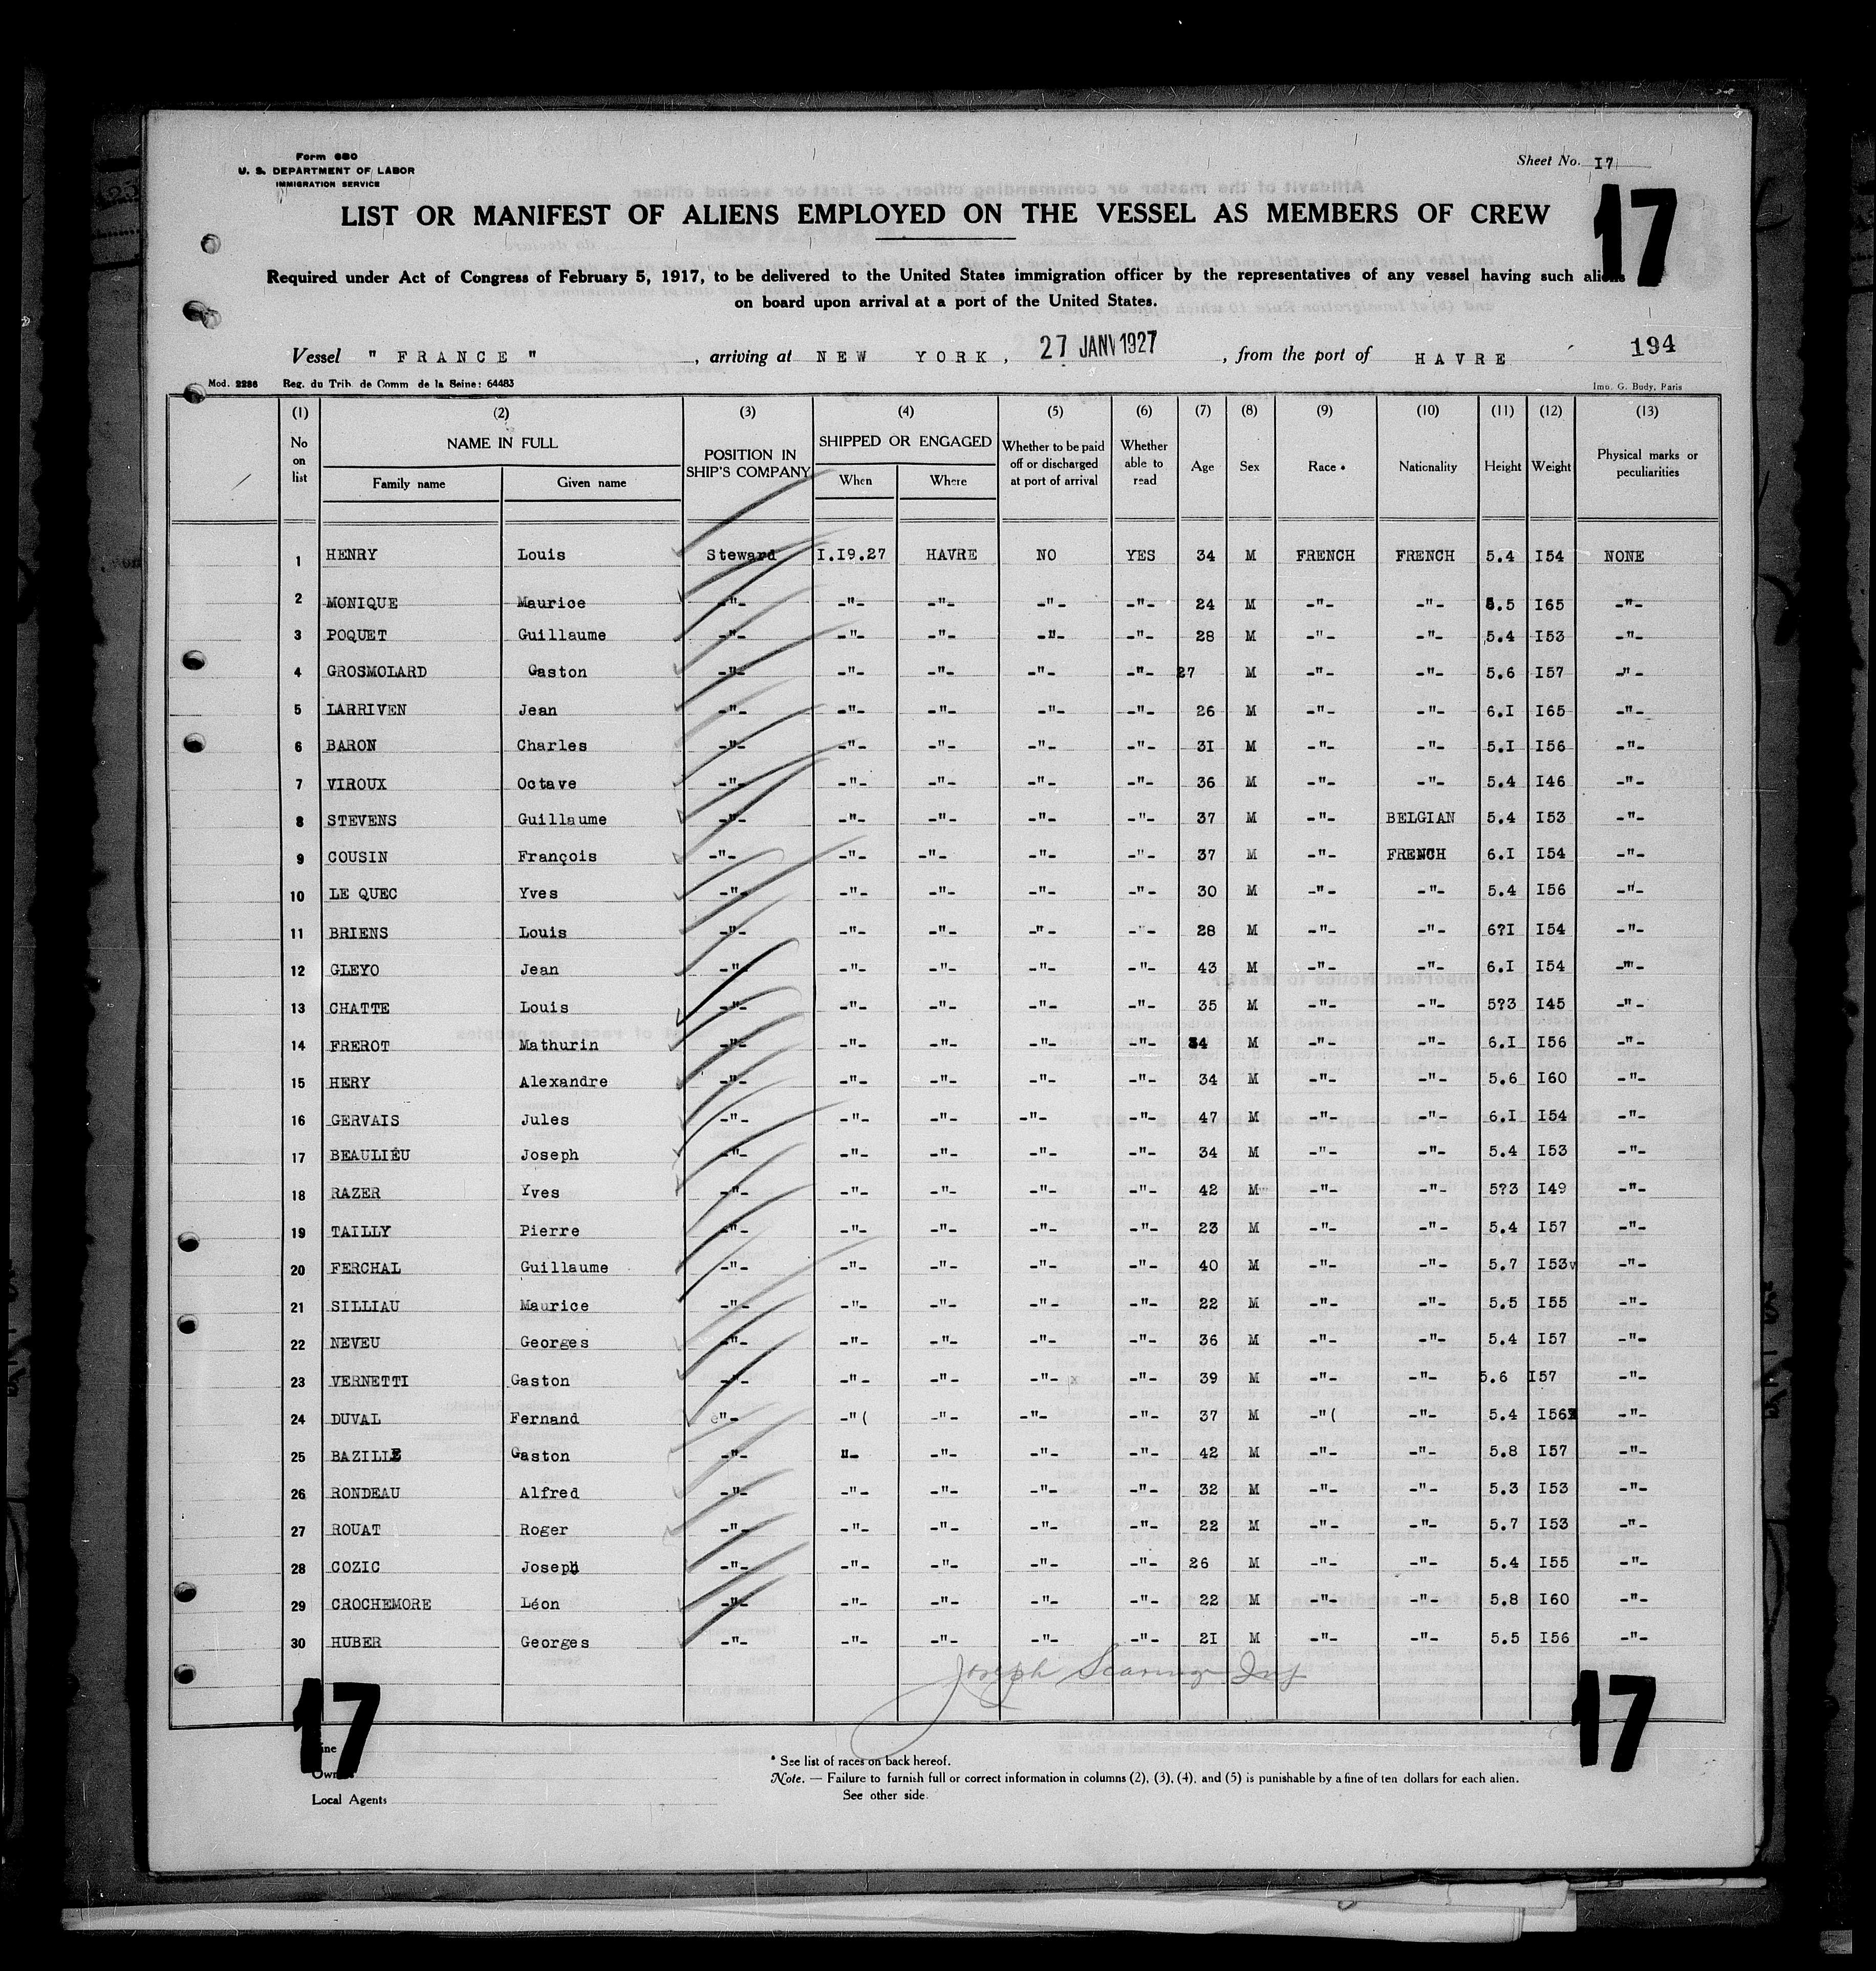 Form 680
U. S. DEPARTMENT OF LABOR
IMMIGRATION SERVICE
Sheet No. I7
17
LIST OR MANIFEST OF ALIENS EMPLOYED ON THE VESSEL AS MEMBERS OF CREW
Required under Act of Congress of February 5, 1917, to be delivered to the United States immigration officer by the representatives of any vessel having such aliens
on board upon arrival at a port of the United States.
Vessel " FRANCE " , arriving at NEW YORK, 27 JANV 1927 , from the port of HAVRE 194
Mod. 2286 Reg. du Trib. de Comm de la Seine: 64483 Imp. G. Budy, Paris
(1) (2) (3) (4) (5) (6) (7) (8) (9) (10) (11) (12) (13)
No on list NAME IN FULL Family name Given name POSITION IN SHIP'S COMPANY SHIPPED OR ENGAGED When Where Whether to be paid off or discharged at port of arrival Whether able to read Age Sex Race * Nationality Height Weight Physical marks or peculiarities
1 HENRY Louis Steward I.I9.27 HAVRE NO YES 34 M FRENCH FRENCH 5.4 I54 NONE
2 MONIQUE Maurice -"- -"- -"- -"- -"- 24 M -"- -"- 5.5 I65 -"-
3 POQUET Guillaume -"- -"- -"- -"- -"- 28 M -"- -"- 5.4 I53 -"-
4 GROSMOLARD Gaston -"- -"- -"- -"- -"- 27 M -"- -"- 5.6 I57 -"-
5 LARRIVEN Jean -"- -"- -"- -"- -"- 26 M -"- -"- 6.I I65 -"-
6 BARON Charles -"- -"- -"- -"- -"- 3I M -"- -"- 5.I I56 -"-
7 VIROUX Octave -"- -"- -"- -"- -"- 36 M -"- -"- 5.4 I46 -"-
8 STEVENS Guillaume -"- -"- -"- -"- -"- 37 M -"- BELGIAN 5.4 I53 -"-
9 COUSIN François -"- -"- -"- -"- -"- 37 M -"- FRENCH 6.I I54 -"-
10 LE QUEC Yves -"- -"- -"- -"- -"- 30 M -"- -"- 5.4 I56 -"-
11 BRIENS Louis -"- -"- -"- -"- -"- 28 M -"- -"- 6?I I54 -"-
12 GLEYO Jean -"- -"- -"- -"- -"- 43 M -"- -"- 6.I I54 -"-
13 CHATTE Louis -"- -"- -"- -"- -"- 35 M -"- -"- 5?3 I45 -"-
14 FREROT Mathurin -"- -"- -"- -"- -"- 34 M -"- -"- 6.I I56 -"-
15 HERY Alexandre -"- -"- -"- -"- -"- 34 M -"- -"- 5.6 I60 -"-
16 GERVAIS Jules -"- -"- -"- -"- -"- 47 M -"- -"- 6.I I54 -"-
17 BEAULIEU Joseph -"- -"- -"- -"- -"- 34 M -"- -"- 5.4 I53 -"-
18 RAZER Yves -"- -"- -"- -"- -"- 42 M -"- -"- 5?3 I49 -"-
19 TAILLY Pierre -"- -"- -"- -"- -"- 23 M -"- -"- 5.4 I57 -"-
20 FERCHAL Guillaume -"- -"- -"- -"- -"- 40 M -"- -"- 5.7 I53v -"-
21 SILLIAU Maurice -"- -"- -"- -"- -"- 22 M -"- -"- 5.5 I55 -"-
22 NEVEU Georges -"- -"- -"- -"- -"- 36 M -"- -"- 5.4 I57 -"-
23 VERNETTI Gaston -"- -"- -"- -"- x -"- 39 M -"- -"- 5.6 I57 -"-
24 DUVAL Fernand "- -"( -"- -"- -"- 37 M -"( -"- 5.4 I56 -"-
25 BAZILLE Gaston -"- "- -"- -"- -"- 42 M -"- -"- 5.8 I57 -"-
26 RONDEAU Alfred -"- -"- -"- -"- -"- 32 M -"- -"- 5.3 I53 -"-
27 ROUAT Roger -"- -"- -"- -"- -"- 22 M -"- -"- 5.7 I53 -"-
28 COZIC Joseph -"- -"- -"- -"- -"- 26 M -"- -"- 5.4 I55 -"-
29 CROCHEMORE Léon -"- -"- -"- -"- -"- 22 M -"- -"- 5.8 I60 -"-
30 HUBER Georges -"- -"- -"- -"- -"- 2I M -"- -"- 5.5 I56 -"-
Joseph
17 17
* See list of races on back hereof.
Note. — Failure to furnish full or correct information in columns (2), (3), (4), and (5) is punishable by a fine of ten dollars for each alien.
See other side.
Local Agents